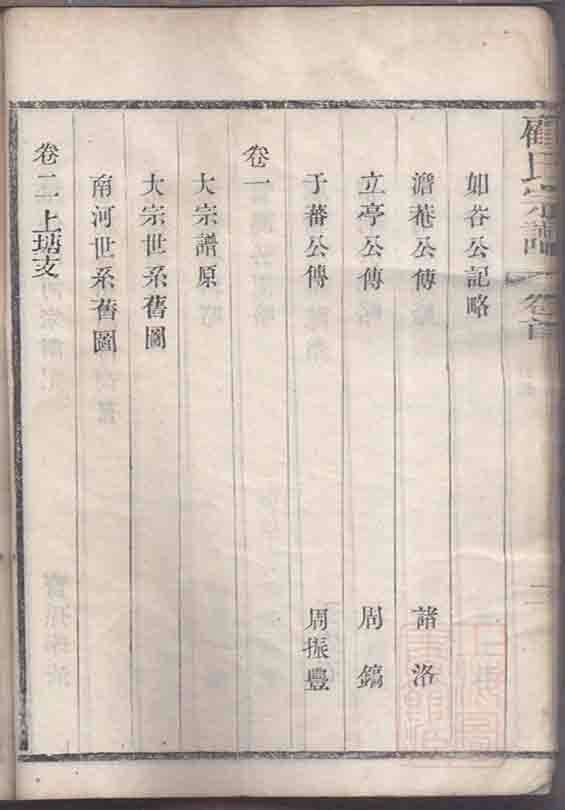 崔氏宗譜 卷首
如谷公記略
澹菴公傳 諸洛
立亭公傳 周鎬
于蕃公傳 周振豐
卷一
大宗譜原
大宗世系舊圖
南河世系舊圖
卷二上塘支